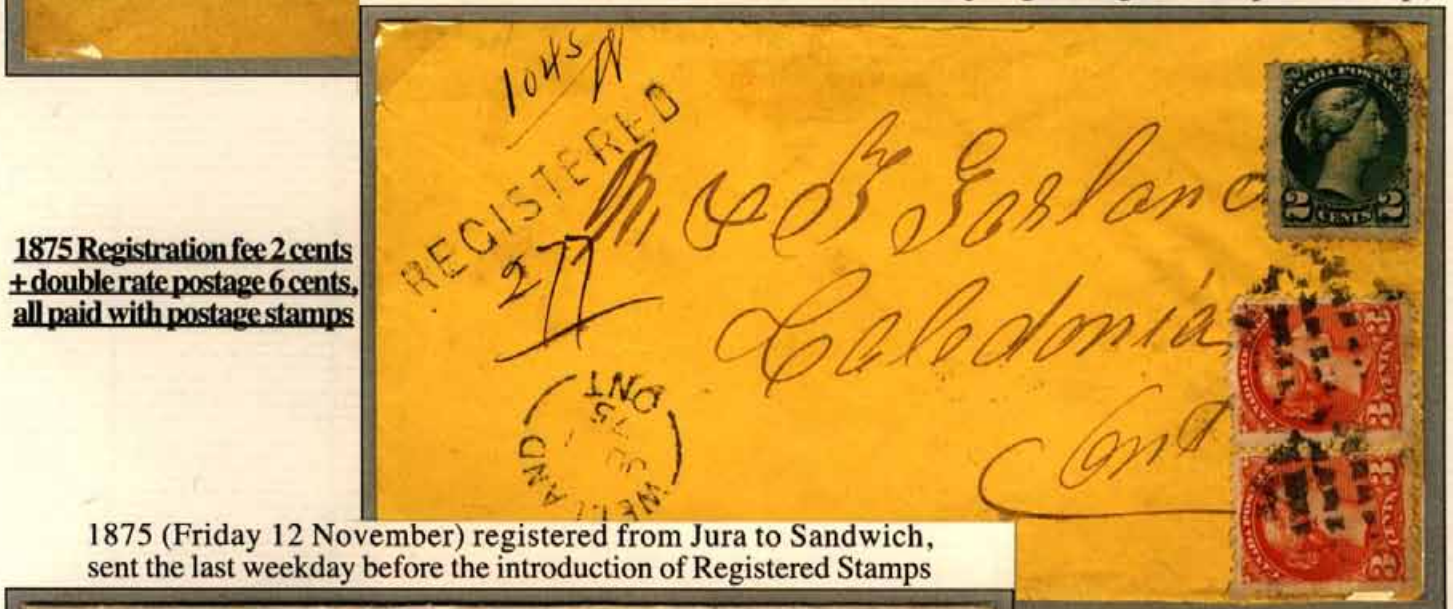 1875 Registration fee 2 cents
+ double rate postage 6 cents,
all paid with postage stamps
1045
REGISTERED
277
Garland
Caledonia
Ont
WELLAND
ONT
75
CANADA POSTAGE
2 CENTS 2
3 CENTS 3
3 CENTS 3
1875 (Friday 12 November) registered from Jura to Sandwich,
sent the last weekday before the introduction of Registered Stamps